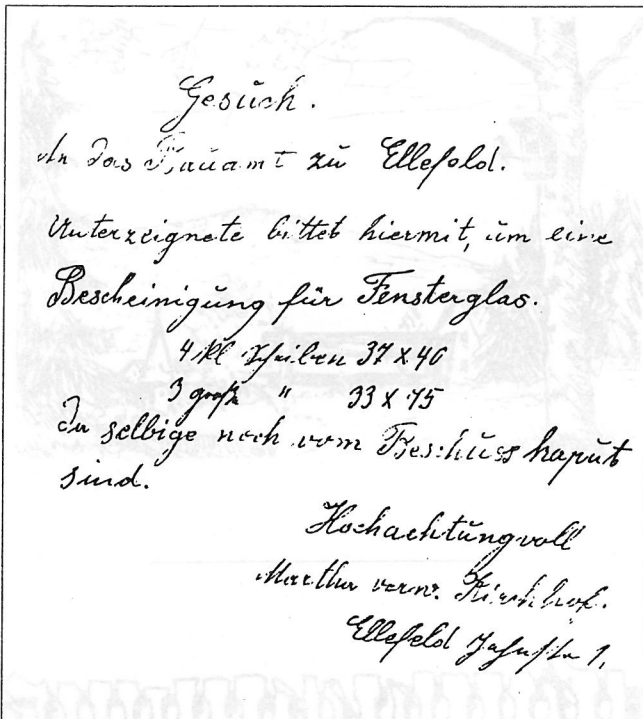 Gesuch.
An das Bauamt zu Ellefeld.
Unterzeignete bittet hiermit, um eine
Bescheinigung für Fensterglas.
4 kl Scheiben 37 x 40
3 große " 33 x 75
Da selbige noch vom Beschuss kaput
sind.
Hochachtungvoll
Martha verw. Kirchhof.
Ellefeld Jahnstr 1.